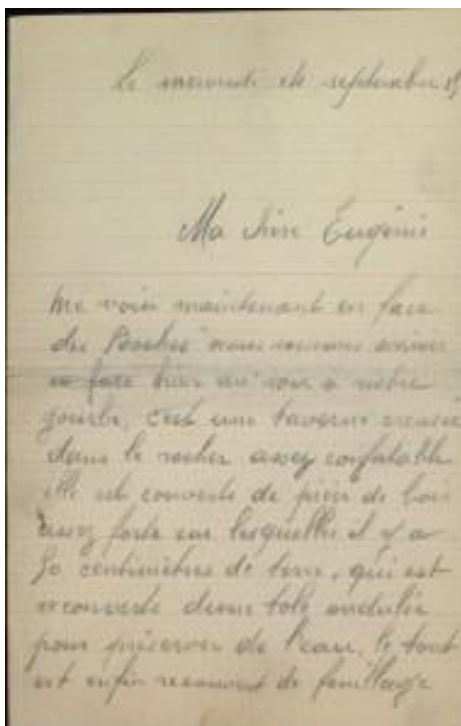 le mercredi 1er septembre 15
Ma chère Eugénie
me voici maintenant en face
des Boches nous sommes arrivés
en face hier au soir à notre
gourbi, c'est une taverne creusée
dans le rocher assez confortable
elle est couverte de pièces de bois
assez forte sur lesquelles il y a
50 centimètres de terre, qui est
recouverte d'une tole ondulée
pour préserver de l'eau, le tout
est enfin recouvert de feuillage